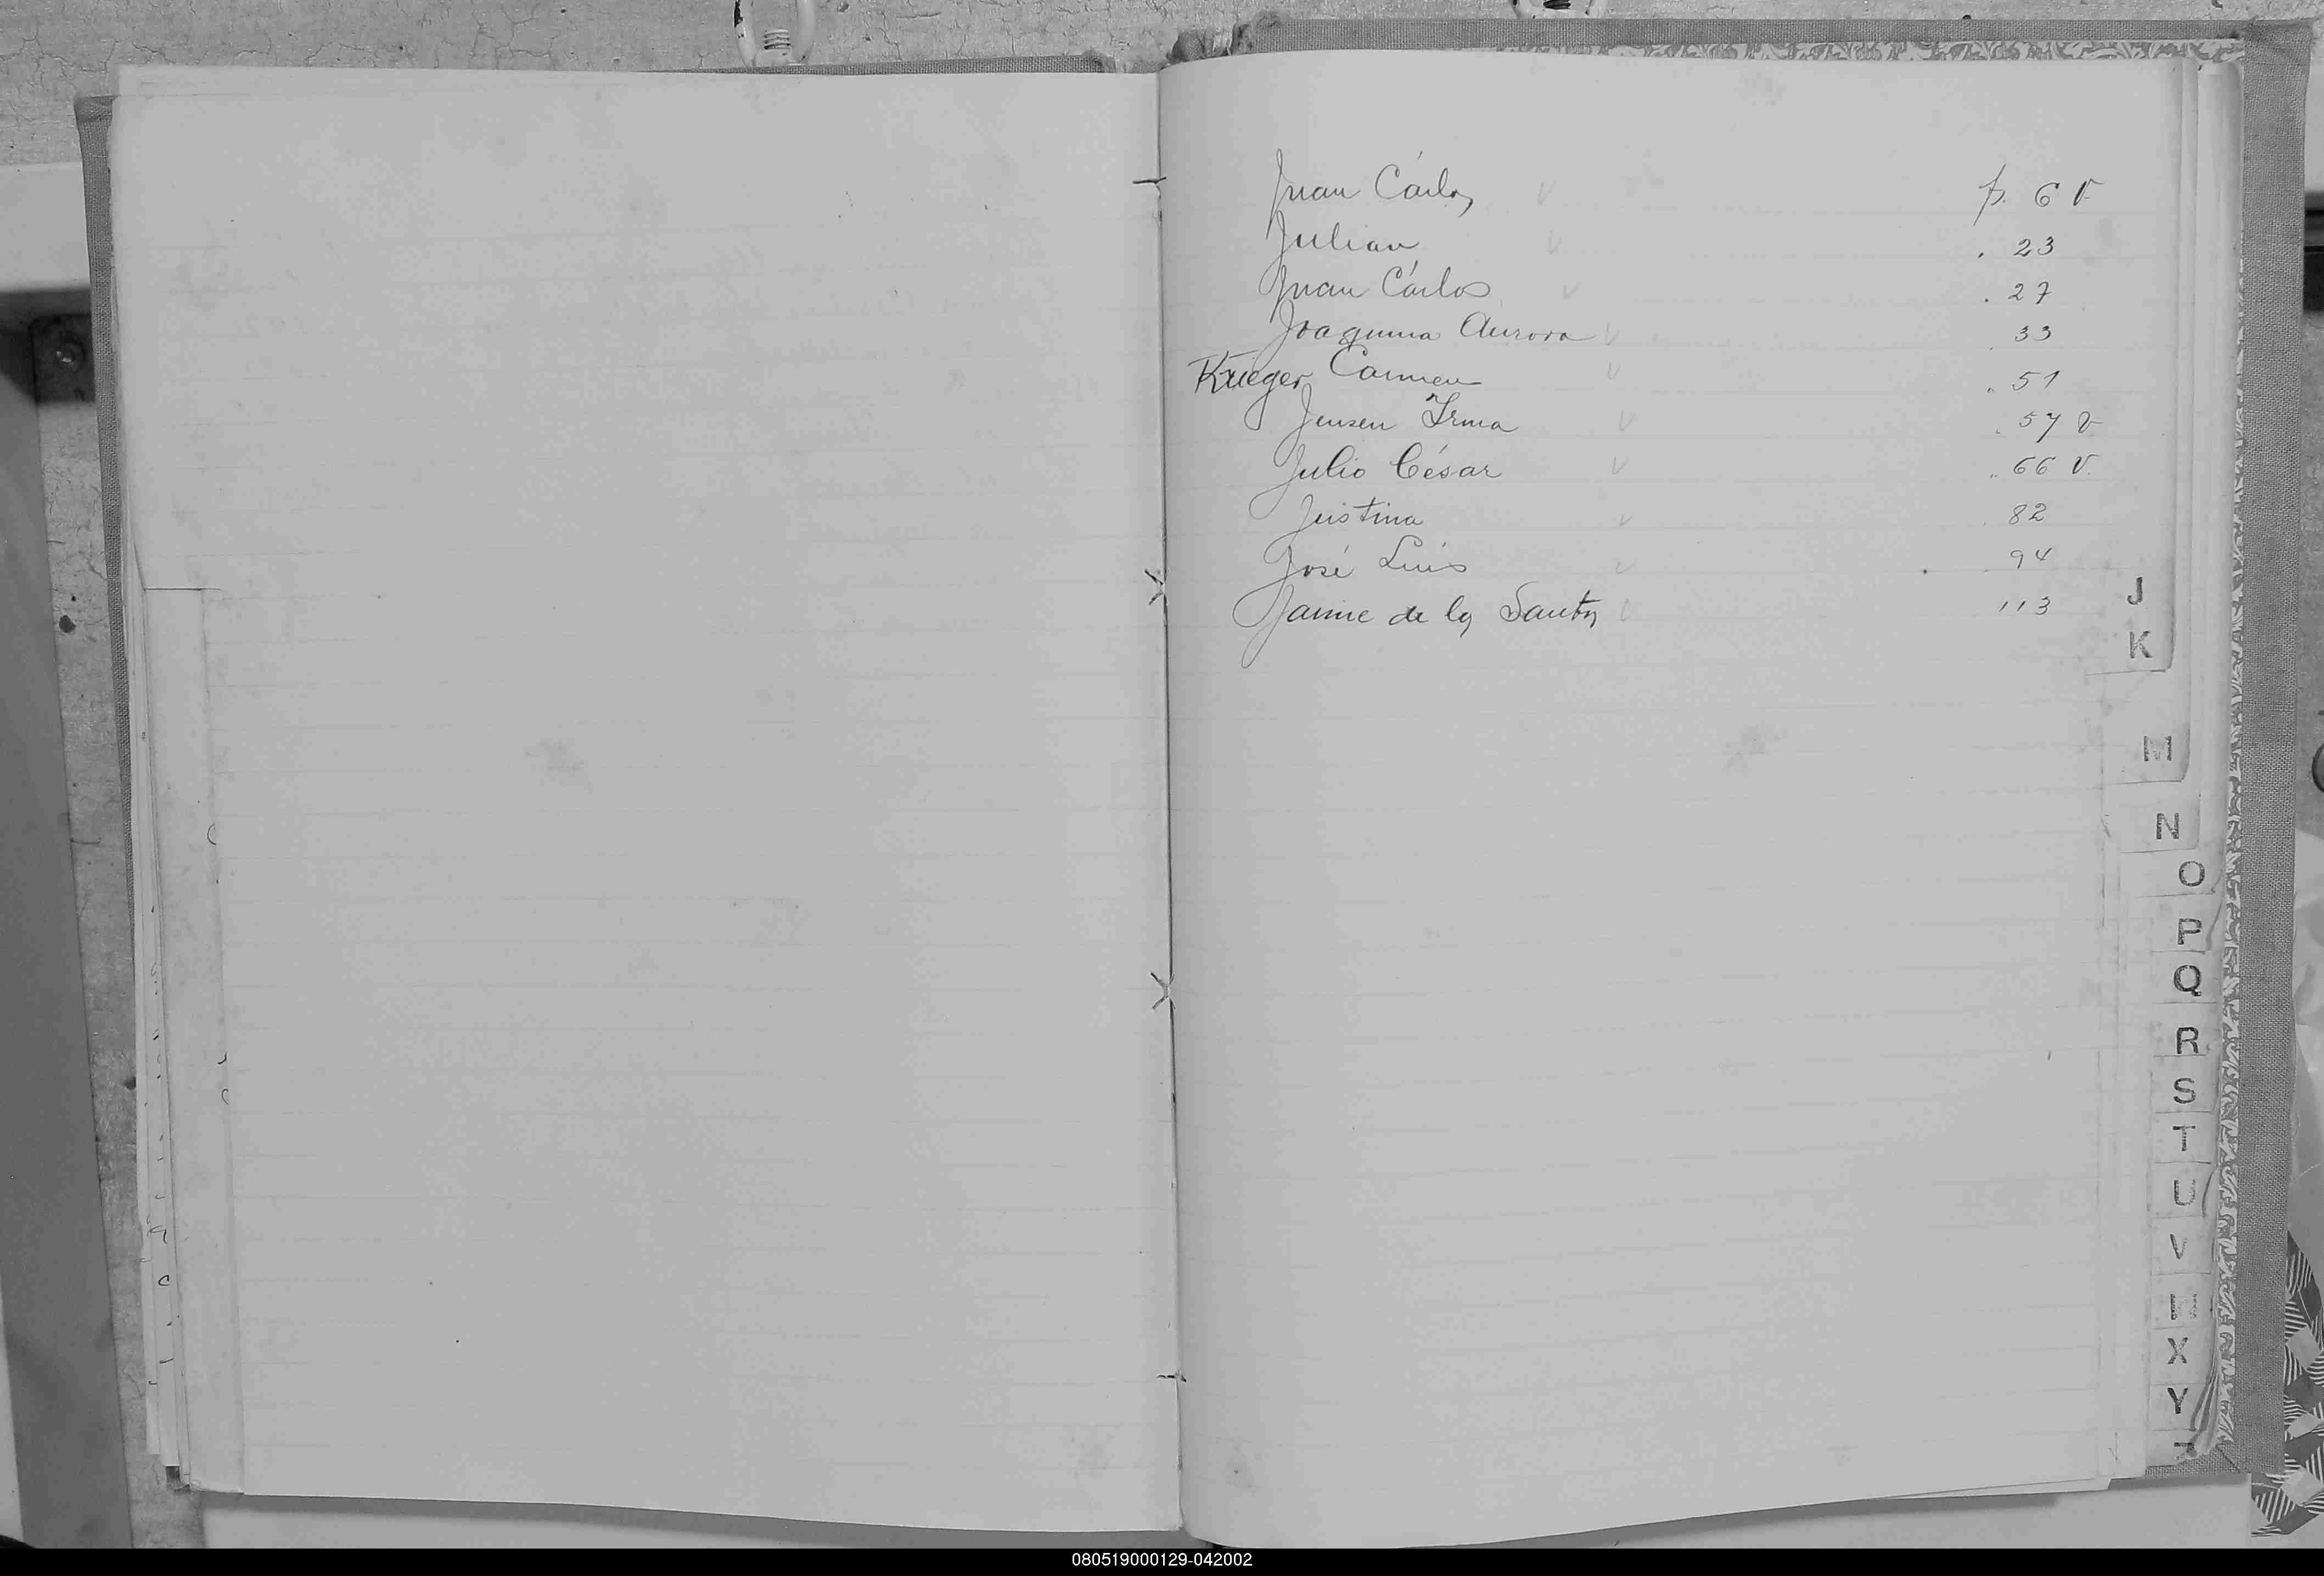 Juan Cárlos p. 6 v
Julian . 23
Juan Cárlos . 27
Joaquina Aurora 33
Krieger Carmen . 51
Jensen Irma . 57 v
Julio César . 66 v.
Justina 82
José Luis 94
Jaime de los Santos 113
J
K
M
N
O
P
Q
R
S
T
U
V
X
Y
Z
080519000129-042002